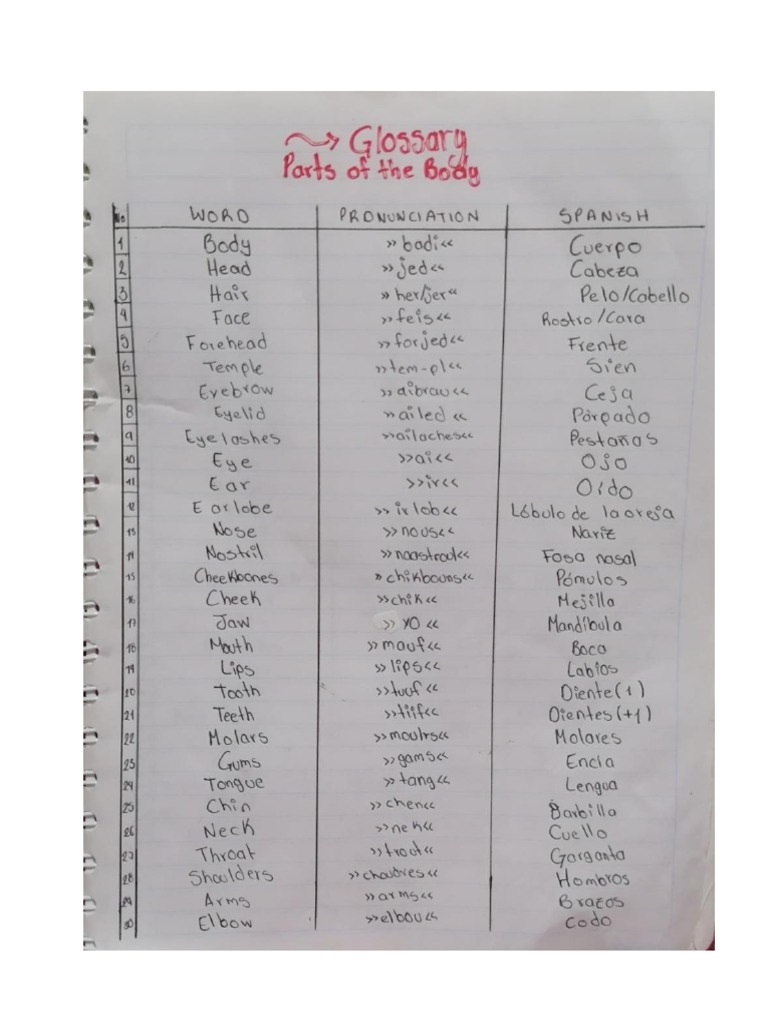 Glossary
Parts of the Body
No WORD PRONUNCIATION SPANISH
1 Body »badi« Cuerpo
2 Head »jed« Cabeza
3 Hair »her/jer« Pelo/Cabello
4 Face »feis« Rostro/Cara
5 Forehead »forjed« Frente
6 Temple »tem-pl« Sien
7 Eyebrow »aibrau« Ceja
8 Eyelid »ailed« Párpado
9 Eyelashes »ailaches« Pestañas
10 Eye »ai« Ojo
11 Ear »ir« Oído
12 Earlobe »irlob« Lóbulo de la oreja
13 Nose »nous« Nariz
14 Nostril »naostrol« Fosa nasal
15 Cheekbones »chikbouns« Pómulos
16 Cheek »chik« Mejilla
17 Jaw »yo« Mandíbula
18 Mouth »mauf« Boca
19 Lips »lips« Labios
20 Tooth »tuuf« Diente(1)
21 Teeth »tiif« Dientes(+1)
22 Molars »moulrs« Molares
23 Gums »gams« Encía
24 Tongue »tang« Lengua
25 Chin »chen« Barbilla
26 Neck »nek« Cuello
27 Throat »trout« Garganta
28 Shoulders »choudres« Hombros
29 Arms »arms« Brazos
30 Elbow »elbou« Codo